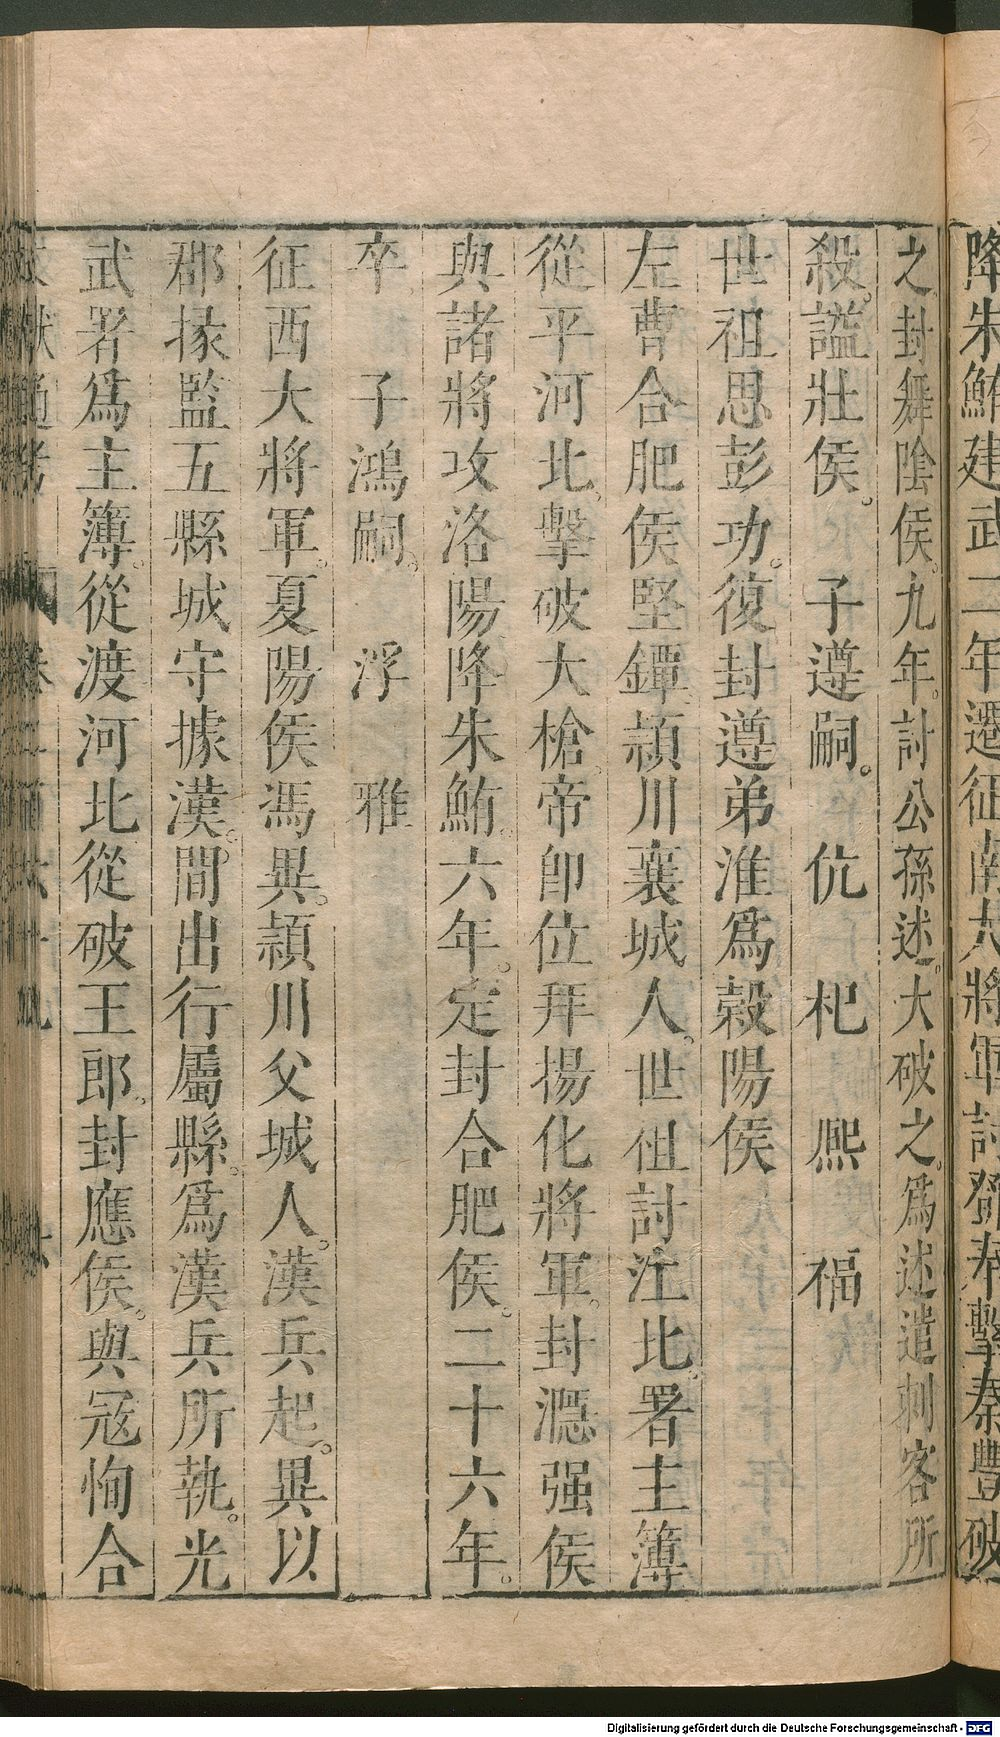 降朱鮪建武二年遷征南大將軍討鄧奉擊秦豐破
之封舞陰侯。九年。討公孫述。大破之。爲述遣刺客所
殺。謚壯侯。　子遵嗣。　伉　杞　熙　福
世祖思彭功。復封遵弟淮爲穀陽侯
左曹合肥侯堅鐔。潁川襄城人。世祖討河北。署主簿
從平河北。擊破大槍。帝卽位。拜揚化將軍。封㶏强侯
與諸將攻洛陽。降朱鮪。六年。定封合肥侯。二十六年。
卒。　子鴻嗣。　浮　雅
征西大將軍。夏陽侯馮異。潁川父城人。漢兵起。異以
郡掾監五縣城守據漢。間出行屬縣。爲漢兵所執。光
武署爲主簿。從渡河北。從破王郎。封應侯。與寇恂合
Digitalisierung gefördert durch die Deutsche Forschungsgemeinschaft - DFG